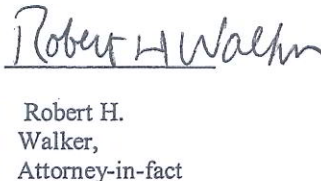 Robert H Walker
Robert H.
Walker,
Attorney-in-fact